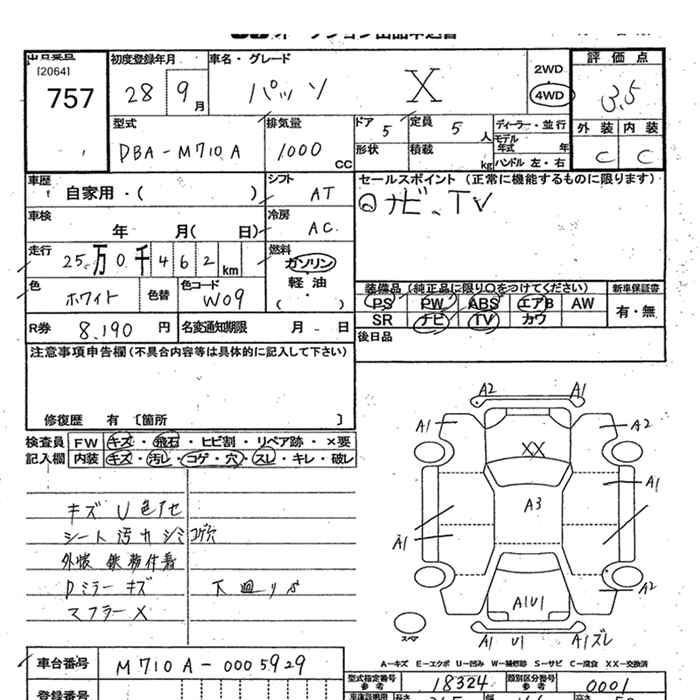 オークション出品申込書
出品番号
[2064]
757
初度登録年月
28 9 月
車名・グレード
パッソ X
2WD
4WD
評価点
3.5
型式
DBA-M710A
排気量
1000 cc
ドア 5
定員 5 人
ディーラー・並行
外装 内装
C C
形状
積載 kg
モデル年式 年
ハンドル 左・右
車歴
自家用・( )
シフト
AT
セールスポイント (正常に機能するものに限ります)
ナビ、TV
車検
年 月( 日)
冷房
AC
走行
25万0千462 km
燃料
ガソリン
軽油
( )
色
ホワイト
色替
色コード
W09
装備品 (純正品に限り○をつけてください)
新車保証書
PS PW ABS エアB AW
有・無
SR ナビ TV カワ
R券 8,190 円
名変通知期限 月 - 日
後日品
注意事項申告欄(不具合内容等は具体的に記入して下さい)
修復歴 有 [箇所 ]
検査員
記入欄
FW キズ・飛石・ヒビ割・リペア跡・×要
内装 キズ・汚レ・コゲ・穴・スレ・キレ・破レ
キズ U 色アセ
シート汚れ シミ コゲ穴
外装 鉄粉付着
Dミラーキズ
下廻りS
マフラーX
A2 A1
A1 A2
XX
A1
A3
A1
A1U1
A2
スペア
A1 U1 A1ズレ
A-キズ E-エクボ U-凹み W-補修跡 S-サビ C-腐食 XX-交換済
車台番号
M710A-0005929
型式指定番号
参考
18324
類別区分番号
参考
0001
登録番号
車庫証明用
長さ